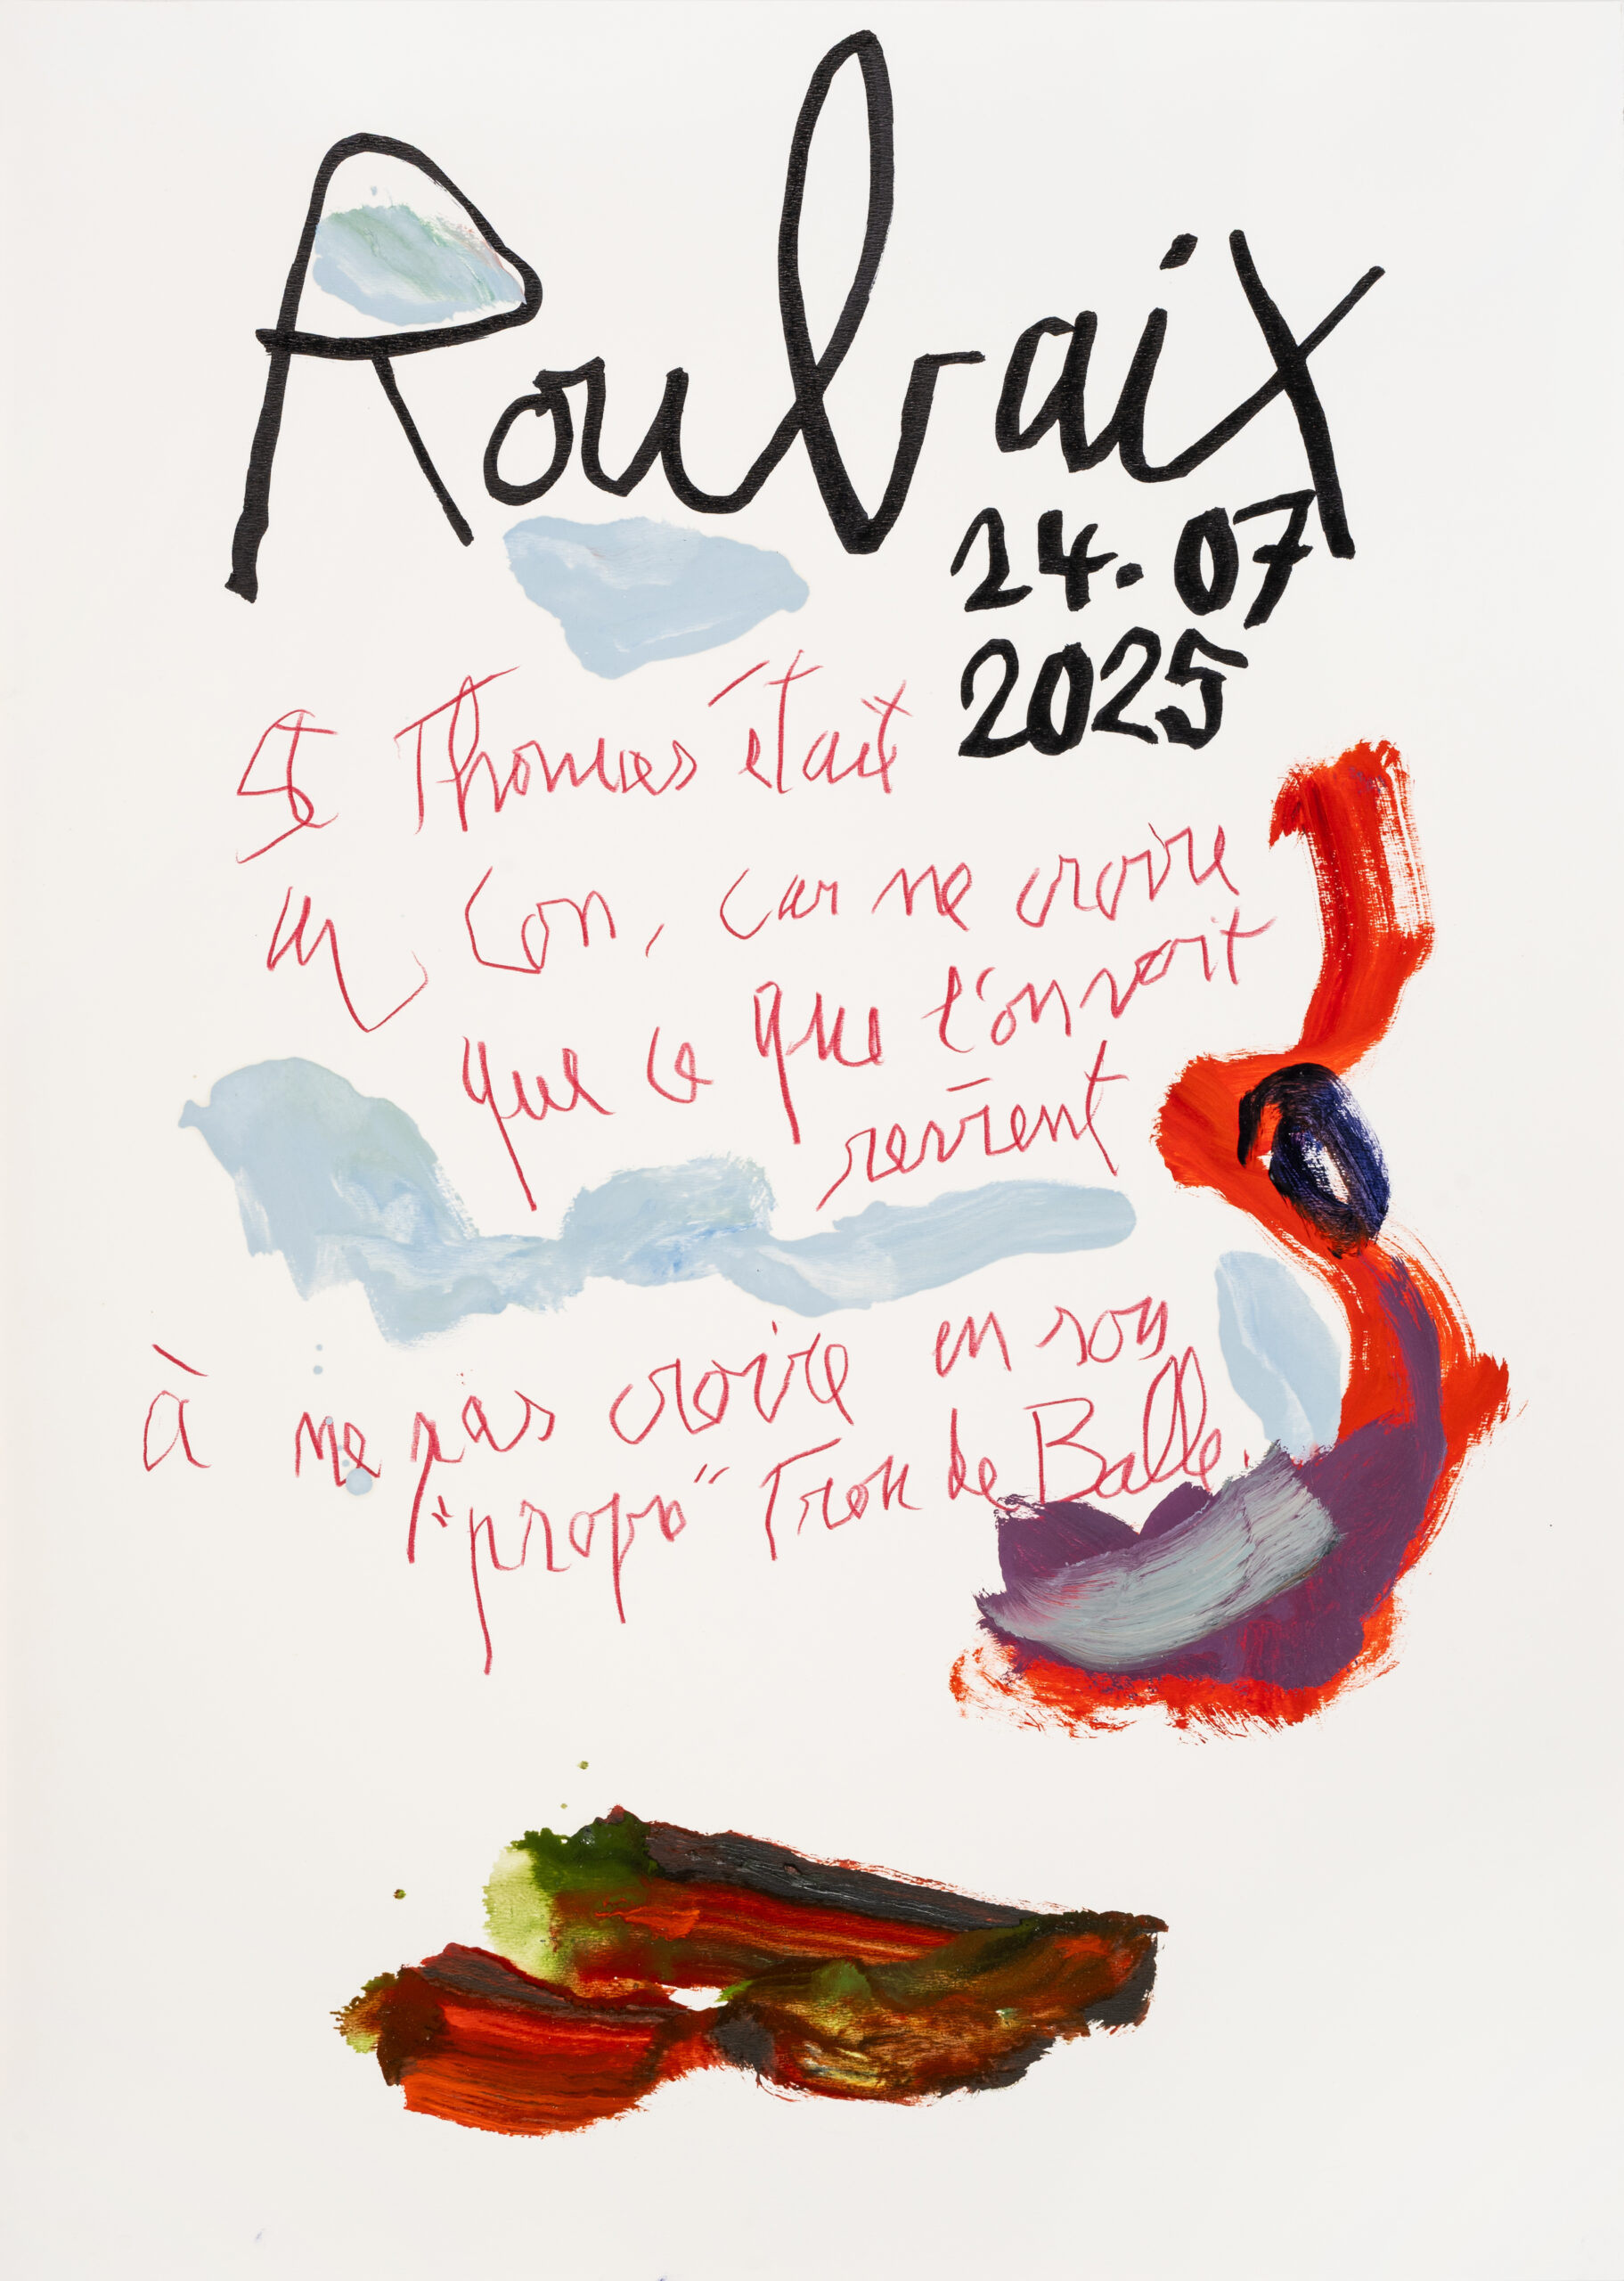 Roubaix
24.07
2025
St Thomas était
un Con, car ne croire
que ce que l'on voit
revient
à ne pas croire en son
"propr" Trou de Balle.